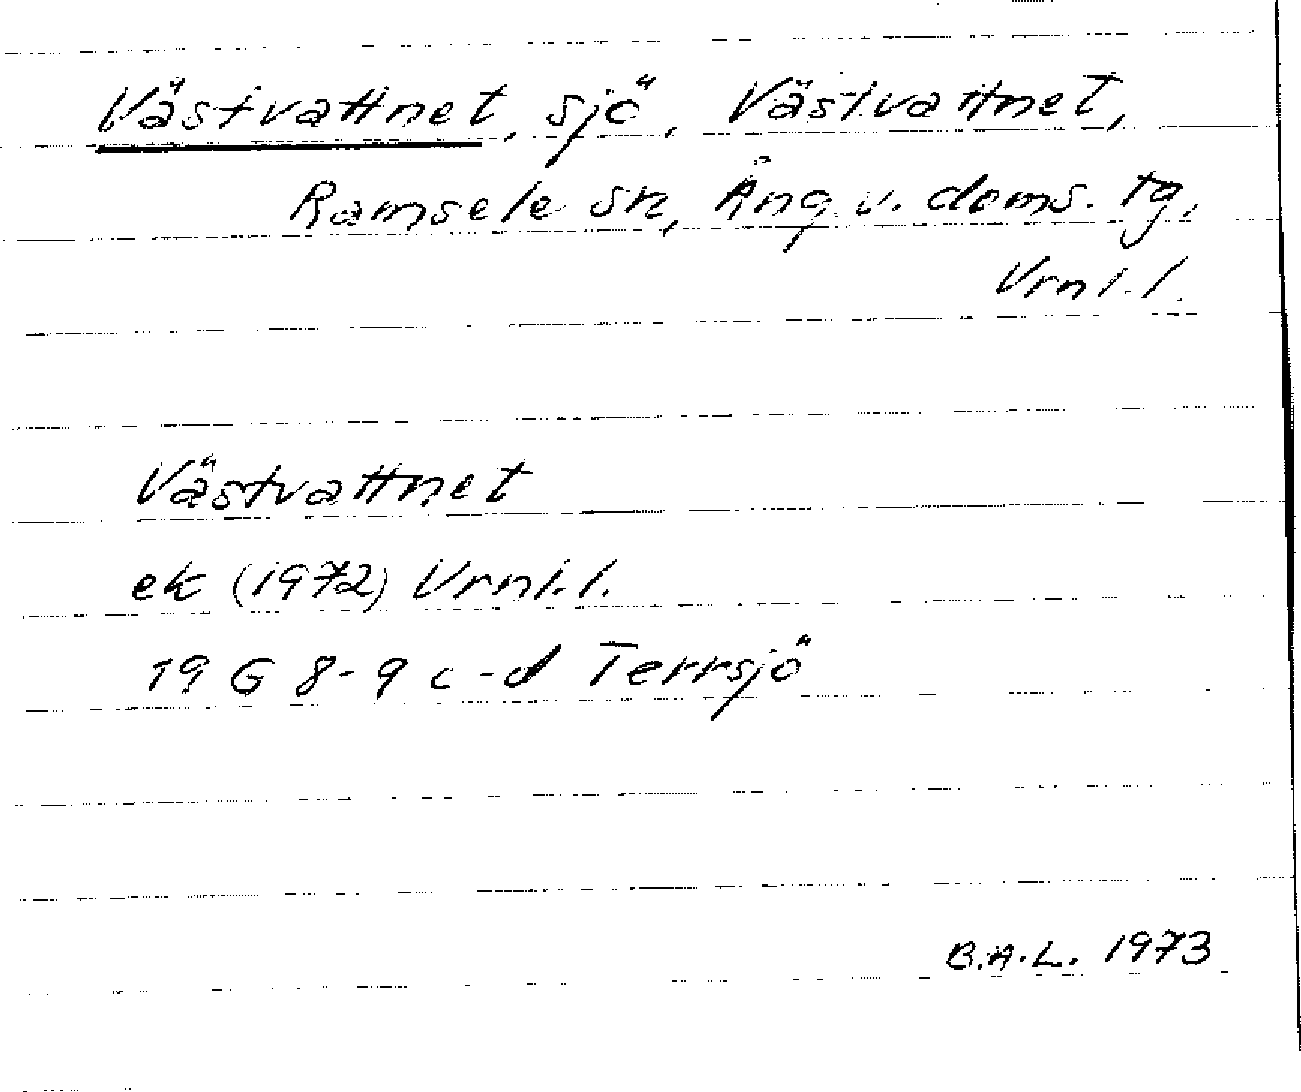 Västvattnet, sjö, Västvattnet,
Ramsele sn, Ång. v. doms. tg,
Vrnl. l.
Västvattnet
ek (1972) Vrnl. l.
19 G 8-9 c-d Terrsjö
B.A.L. 1973